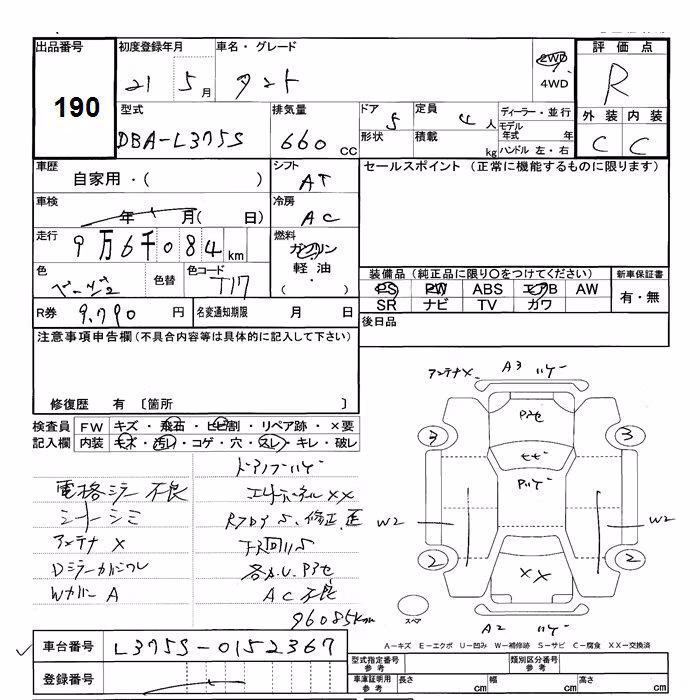 出品番号
190
初度登録年月
21 5 月
車名・グレード
タント
2WD
4WD
評価点
R
外装 内装
C C
型式
DBA-L375S
排気量
660 cc
ドア
5
形状
定員
4 人
積載
kg
ディーラー・並行
モデル年式 年
ハンドル 左・右
車歴
自家用・( )
シフト
AT
セールスポイント (正常に機能するものに限ります)
車検
年 月( 日)
冷房
AC
走行
9万6千084 km
燃料
ガソリン
軽油
( ・ )
色
ベージュ
色替
色コード
T17
装備品 (純正品に限り〇をつけてください)
PS PW ABS エアB AW
SR ナビ TV カワ
新車保証書
有・無
R券 9,790 円
名変通知期限 月 日
後日品
注意事項申告欄(不具合内容等は具体的に記入して下さい)
修復歴 有 〔箇所 〕
検査員記入欄
FW キズ・飛石・ヒビ割・リペア跡・×要
内装 モネ・汚れ・コゲ・穴・スレ・キレ・破レ
ドアノブハゲ
電格ミラー不良
シートシミ
アンテナ X
Wカバー A
AC不良
96085km
アンテナX
A3 ハゲ
3 3
W2 W2
2 2
XX
スペア
A2 ハゲ
A-キズ E-エクボ U-凹み W-補修跡 S-サビ C-腐食 XX-交換済
車台番号 L375S-0152367
登録番号
型式指定番号 参考
類別区分番号 参考
車庫証明用 参考
長さ cm
幅 cm
高さ cm